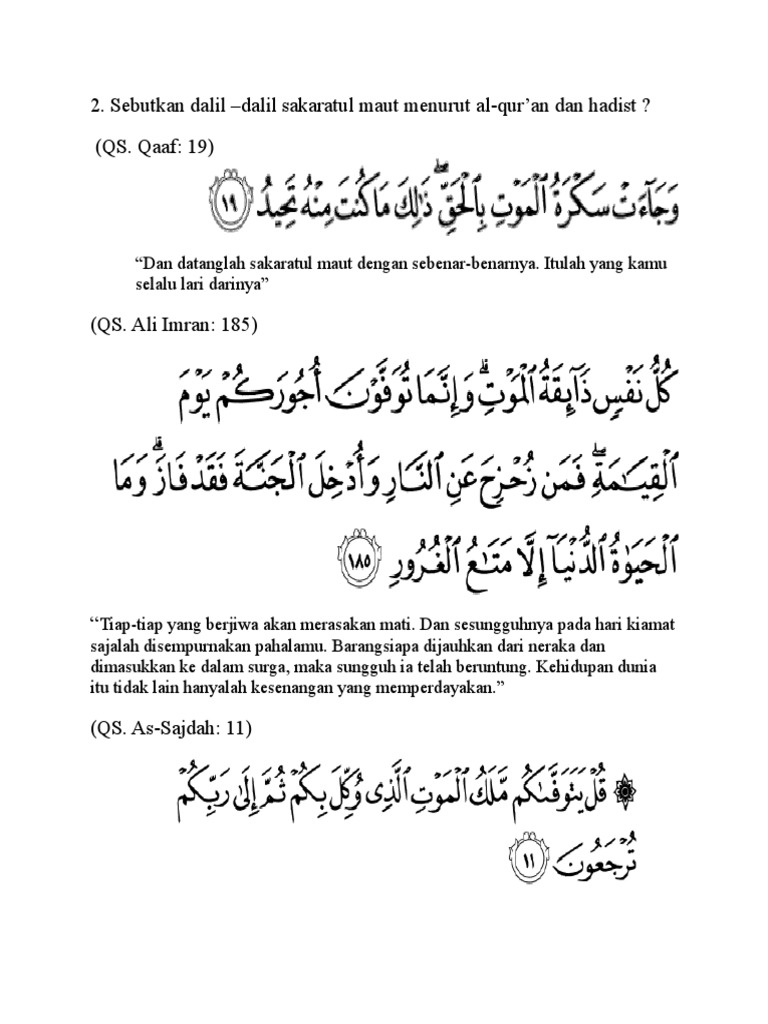 2. Sebutkan dalil –dalil sakaratul maut menurut al-qur’an dan hadist ?
(QS. Qaaf: 19)
وَجَآءَتْ سَكْرَةُ ٱلْمَوْتِ بِٱلْحَقِّ ۖ ذَٰلِكَ مَا كُنتَ مِنْهُ تَحِيدُ ١٩
“Dan datanglah sakaratul maut dengan sebenar-benarnya. Itulah yang kamu
selalu lari darinya”
(QS. Ali Imran: 185)
كُلُّ نَفْسٍ ذَآئِقَةُ ٱلْمَوْتِ ۗ وَإِنَّمَا تُوَفَّوْنَ أُجُورَكُمْ يَوْمَ
ٱلْقِيَـٰمَةِ ۖ فَمَن زُحْزِحَ عَنِ ٱلنَّارِ وَأُدْخِلَ ٱلْجَنَّةَ فَقَدْ فَازَ ۗ وَمَا
ٱلْحَيَوٰةُ ٱلدُّنْيَآ إِلَّا مَتَـٰعُ ٱلْغُرُورِ ١٨٥
“Tiap-tiap yang berjiwa akan merasakan mati. Dan sesungguhnya pada hari kiamat
sajalah disempurnakan pahalamu. Barangsiapa dijauhkan dari neraka dan
dimasukkan ke dalam surga, maka sungguh ia telah beruntung. Kehidupan dunia
itu tidak lain hanyalah kesenangan yang memperdayakan.”
(QS. As-Sajdah: 11)
۞ قُلْ يَتَوَفَّىٰكُم مَّلَكُ ٱلْمَوْتِ ٱلَّذِى وُكِّلَ بِكُمْ ثُمَّ إِلَىٰ رَبِّكُمْ
تُرْجَعُونَ ١١